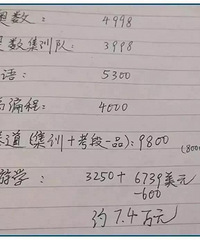 奥数: 4998
奥数集训队: 3998
语: 5300
编程: 4000
道(集训+考段一品): 9800
(800
游学: 3250+6739美元
-600
约7.4万元